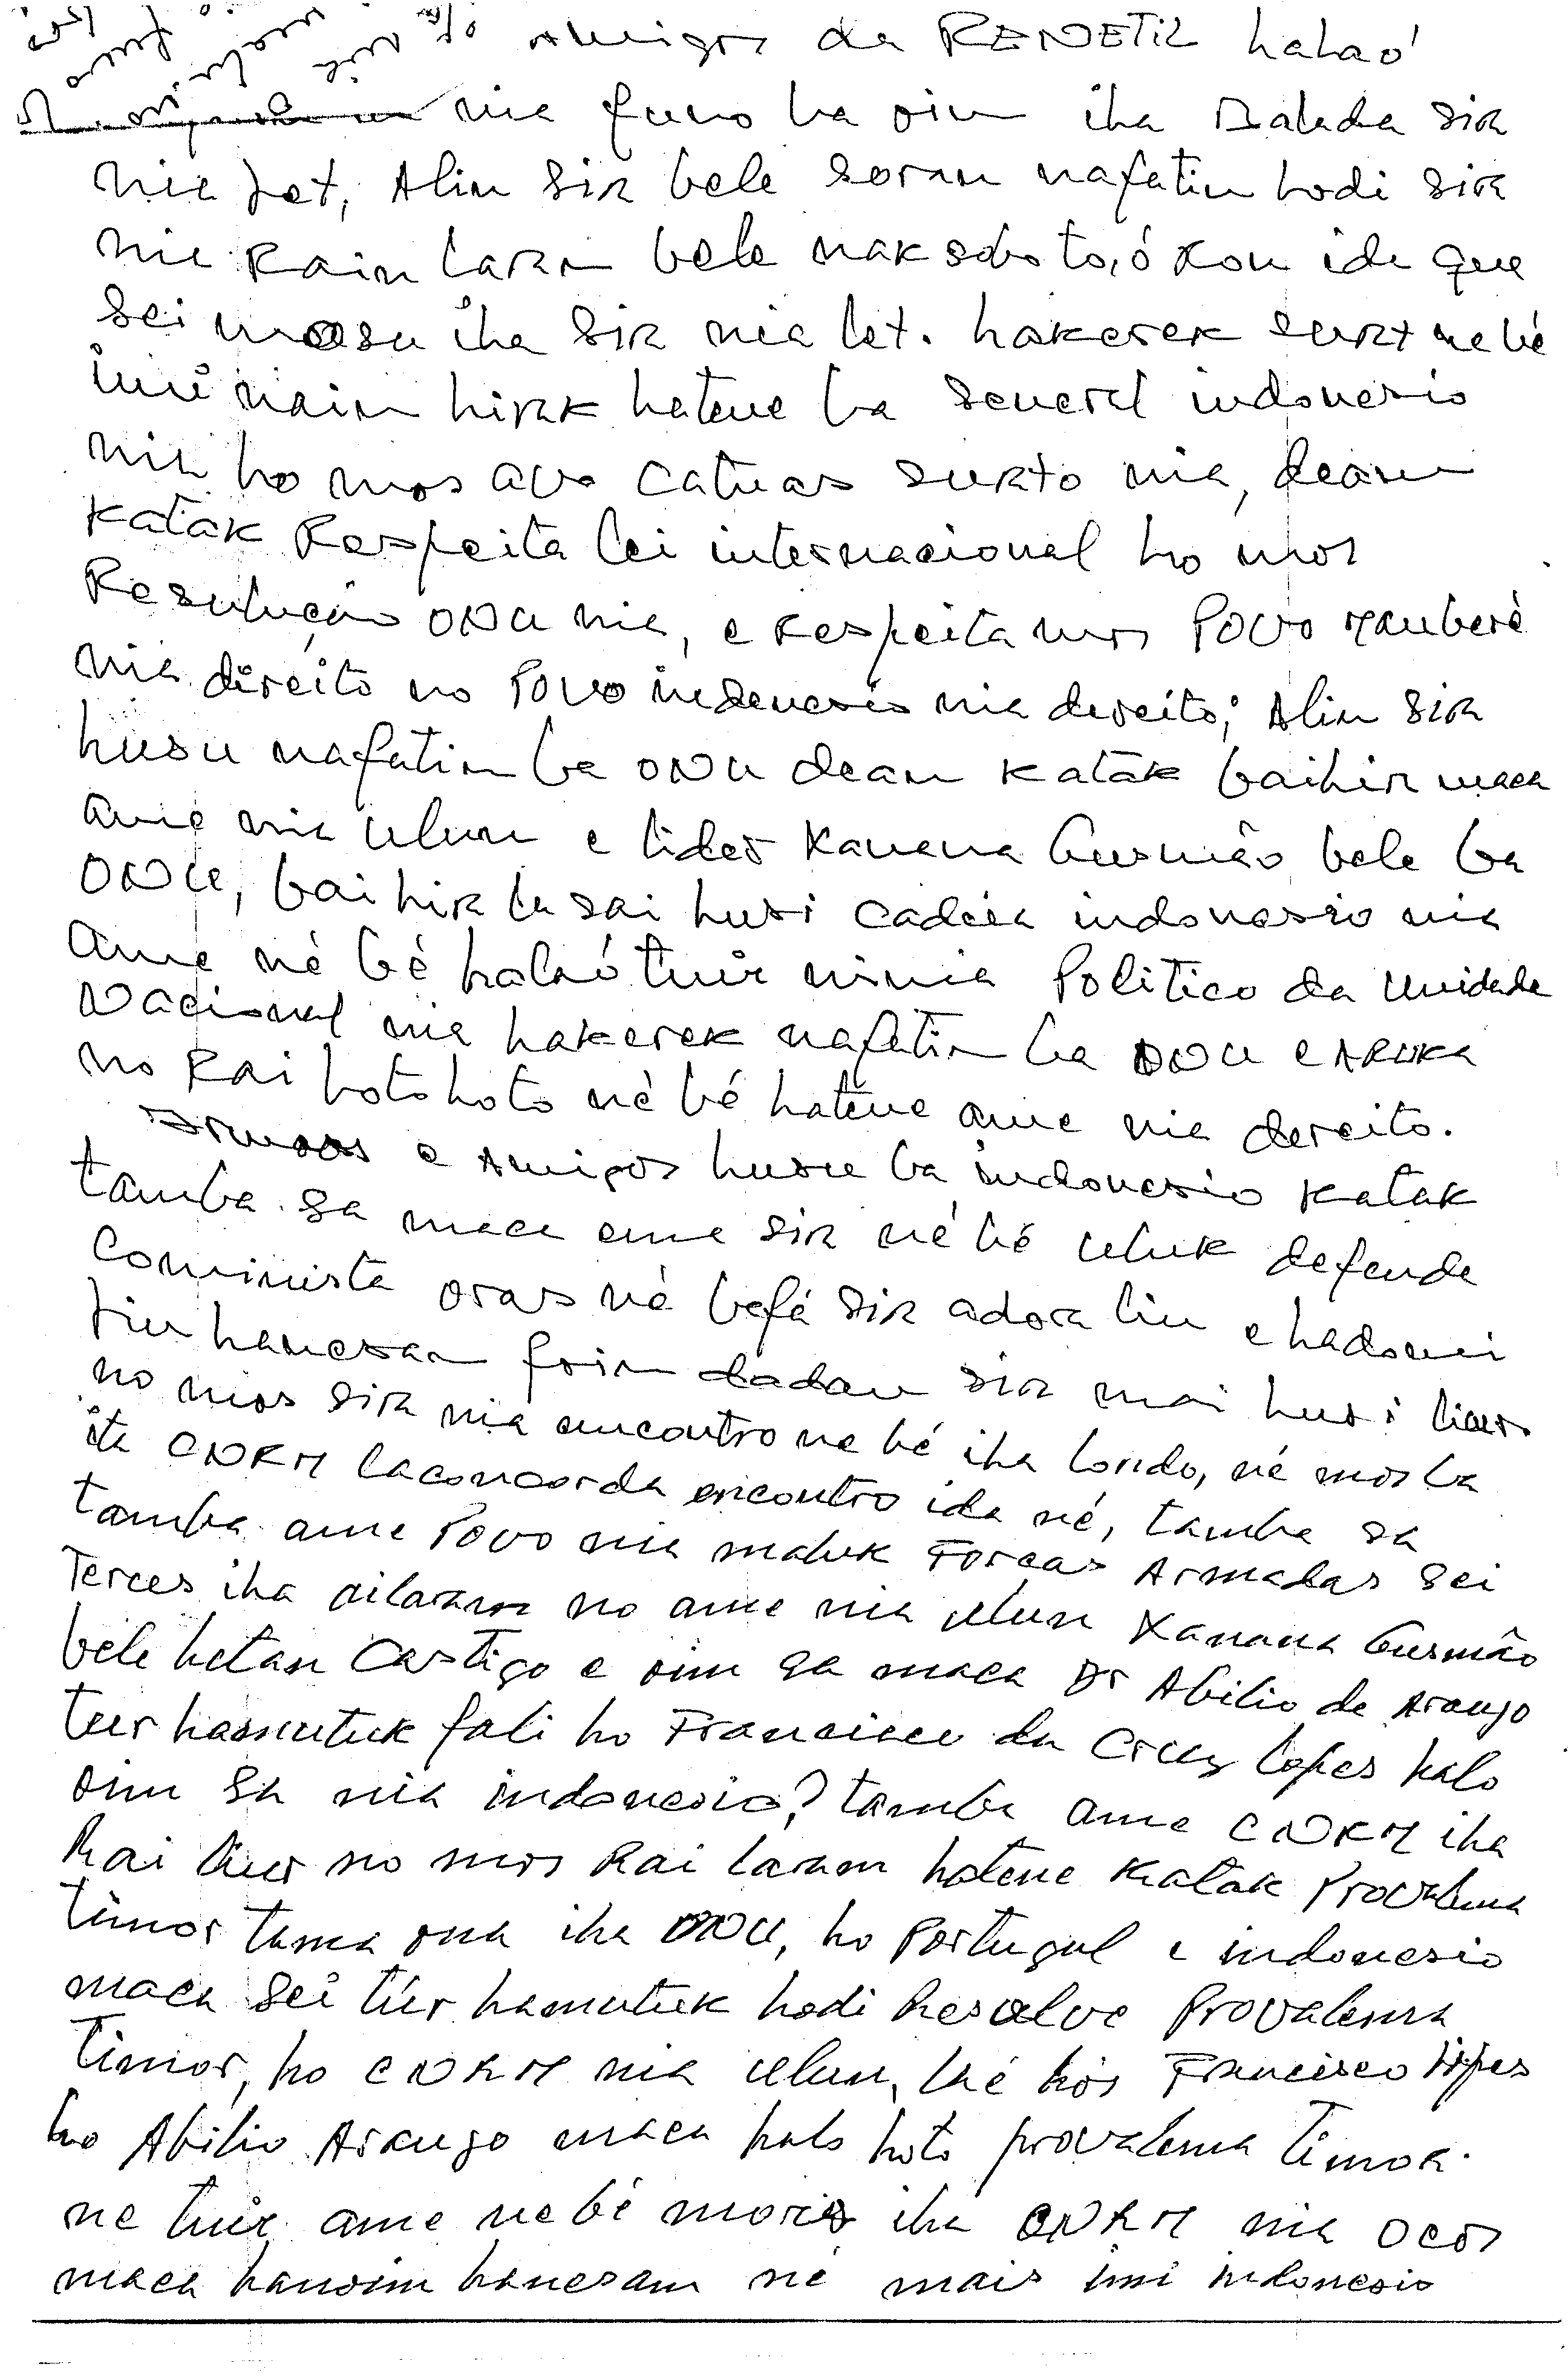 Amigos da RENETIL halao'
nia funo ba oin iha Balada sira
nia let, Alin sira bele soran nafatin hodi sira
nia Rain laran bele nak sobo to, ó Ron ida que
sei mosu iha sira nia let. hakerek surat nebé
imi nain hirak hatene ba General indonesio
nia ho mos avo catuas surto nia, dean
Katak Respeita lei internacional ho mos
Resulução ONU nia, e Respeita mos Povo Mauberè
nia direito no Povo indonesio nia direito; Alin sira
husu nafatin ba ONU dean Katak baihira maca
ame nia ulun e lider Xanana Gusmão bele ba
ONU, baihira la sai husi cadeia indonesio nia
Ame nè bè halaó tuir ninia Politico da Unidade
Nacional nia hakerek nafatin ba ONU e ARUKA
no Rai hotohoto nè bé hatene ame nia dereito.
Irmaos e Amigos husu ba indonesio Katak
tamba sa maca ema sira né bé uluk defende
Cominista oras nè befé sira adora liu e hadomi
liu hanesan foin dadau sira mai husi liur
no mos sira nia encontro ne bé iha londo, né mos ba
ita CNRM la concorda encontro ida né, tamba sa
tamba ame Povo nia maluk Forcas Armadas sei
Terces iha ailaran no ame nia ulun Xanana Gusmão
bele hetan Castigo e oin sa maca Dr Abilio de Araujo
tur hamutuk fali ho Francisco da Cruz lopes halo
oin sa nia indonesio? tamba ame CNRM iha
Rai liur no mos Rai laran hatene Katak Provalema
timor tama ona iha ONU, ho Portugal e indonesio
maca sei túr hamutuk hodi Resolve Provalema
Timor, ho CNRM nia ulun, laé hós Francisco lopes
ho Abilio Araujo maca halo hoto provalema timor.
ne tuir ame nebé moris iha CNRM nia ocos
maca hanoin hanesan né mais imi indonesio